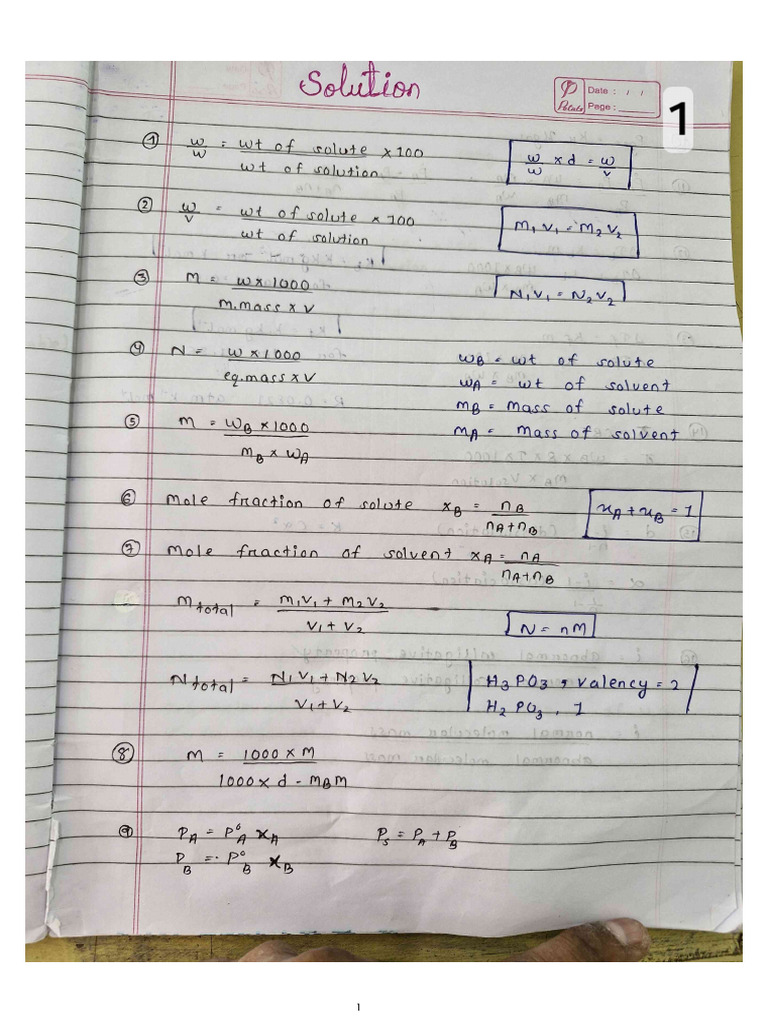 Solution
Date : / /
Potato Page:
1
① w/w = wt of solute × 100 / wt of solution
w/w × d = w/v
② w/v = wt of solute × 100 / wt of solution
M₁V₁ = M₂V₂
③ M = w × 1000 / m.mass × V
N₁V₁ = N₂V₂
④ N = w × 1000 / eq.mass × V
wB = wt of solute
wA = wt of solvent
mB = mass of solute
mA = mass of solvent
⑤ m = wB × 1000 / mB × wA
⑥ mole fraction of solute xB = nB / nA + nB
xA + xB = 1
⑦ mole fraction of solvent xA = nA / nA + nB
Mtotal = M₁V₁ + M₂V₂ / V₁ + V₂
N = nM
Ntotal = N₁V₁ + N₂V₂ / V₁ + V₂
H₃PO₃, valency = 2
H₂PO₃, 1
⑧ m = 1000 × M / 1000 × d - mBM
⑨ PA = P°A xA
Ps = PA + PB
PB = P°B xB
1